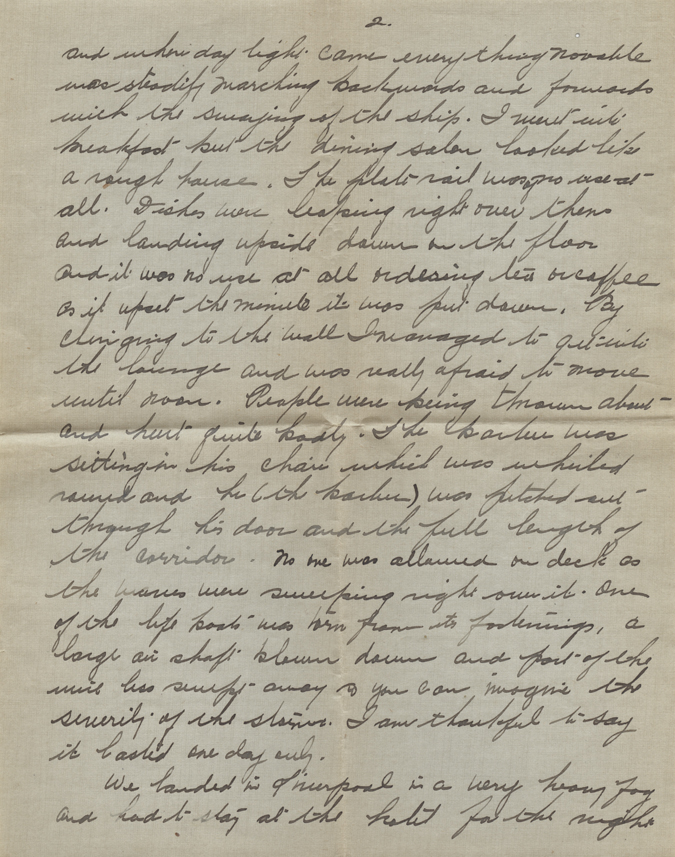 2.
and when day light came everything movable
was steadily marching backwards and forwards
with the swaying of the ship. I went into
breakfast but the dining salon looked like
a rough house. The plate rail was no use at
all. Dishes were leaping right over them
and landing upside down on the floor
and it was no use at all ordering tea or coffee
as it upset the minute it was put down. By
clinging to the wall I managed to get into
the lounge and was really afraid to move
until noon. People were being thrown about
and hurt quite badly. The barber was
sitting in his chair which was wheeled
round and he (the barber) was pitched out
through his door and the full length of
the corridor. No one was allowed on deck as
the waves were sweeping right over it. One
of the life boats was torn from its fastenings, a
large air shaft blown down and part of the
wire less swept away so you can imagine the
severity of the storm. I am thankful to say
it lasted one day only.
We landed in Liverpool in a very heavy fog
and had to stay at the hotel for the night